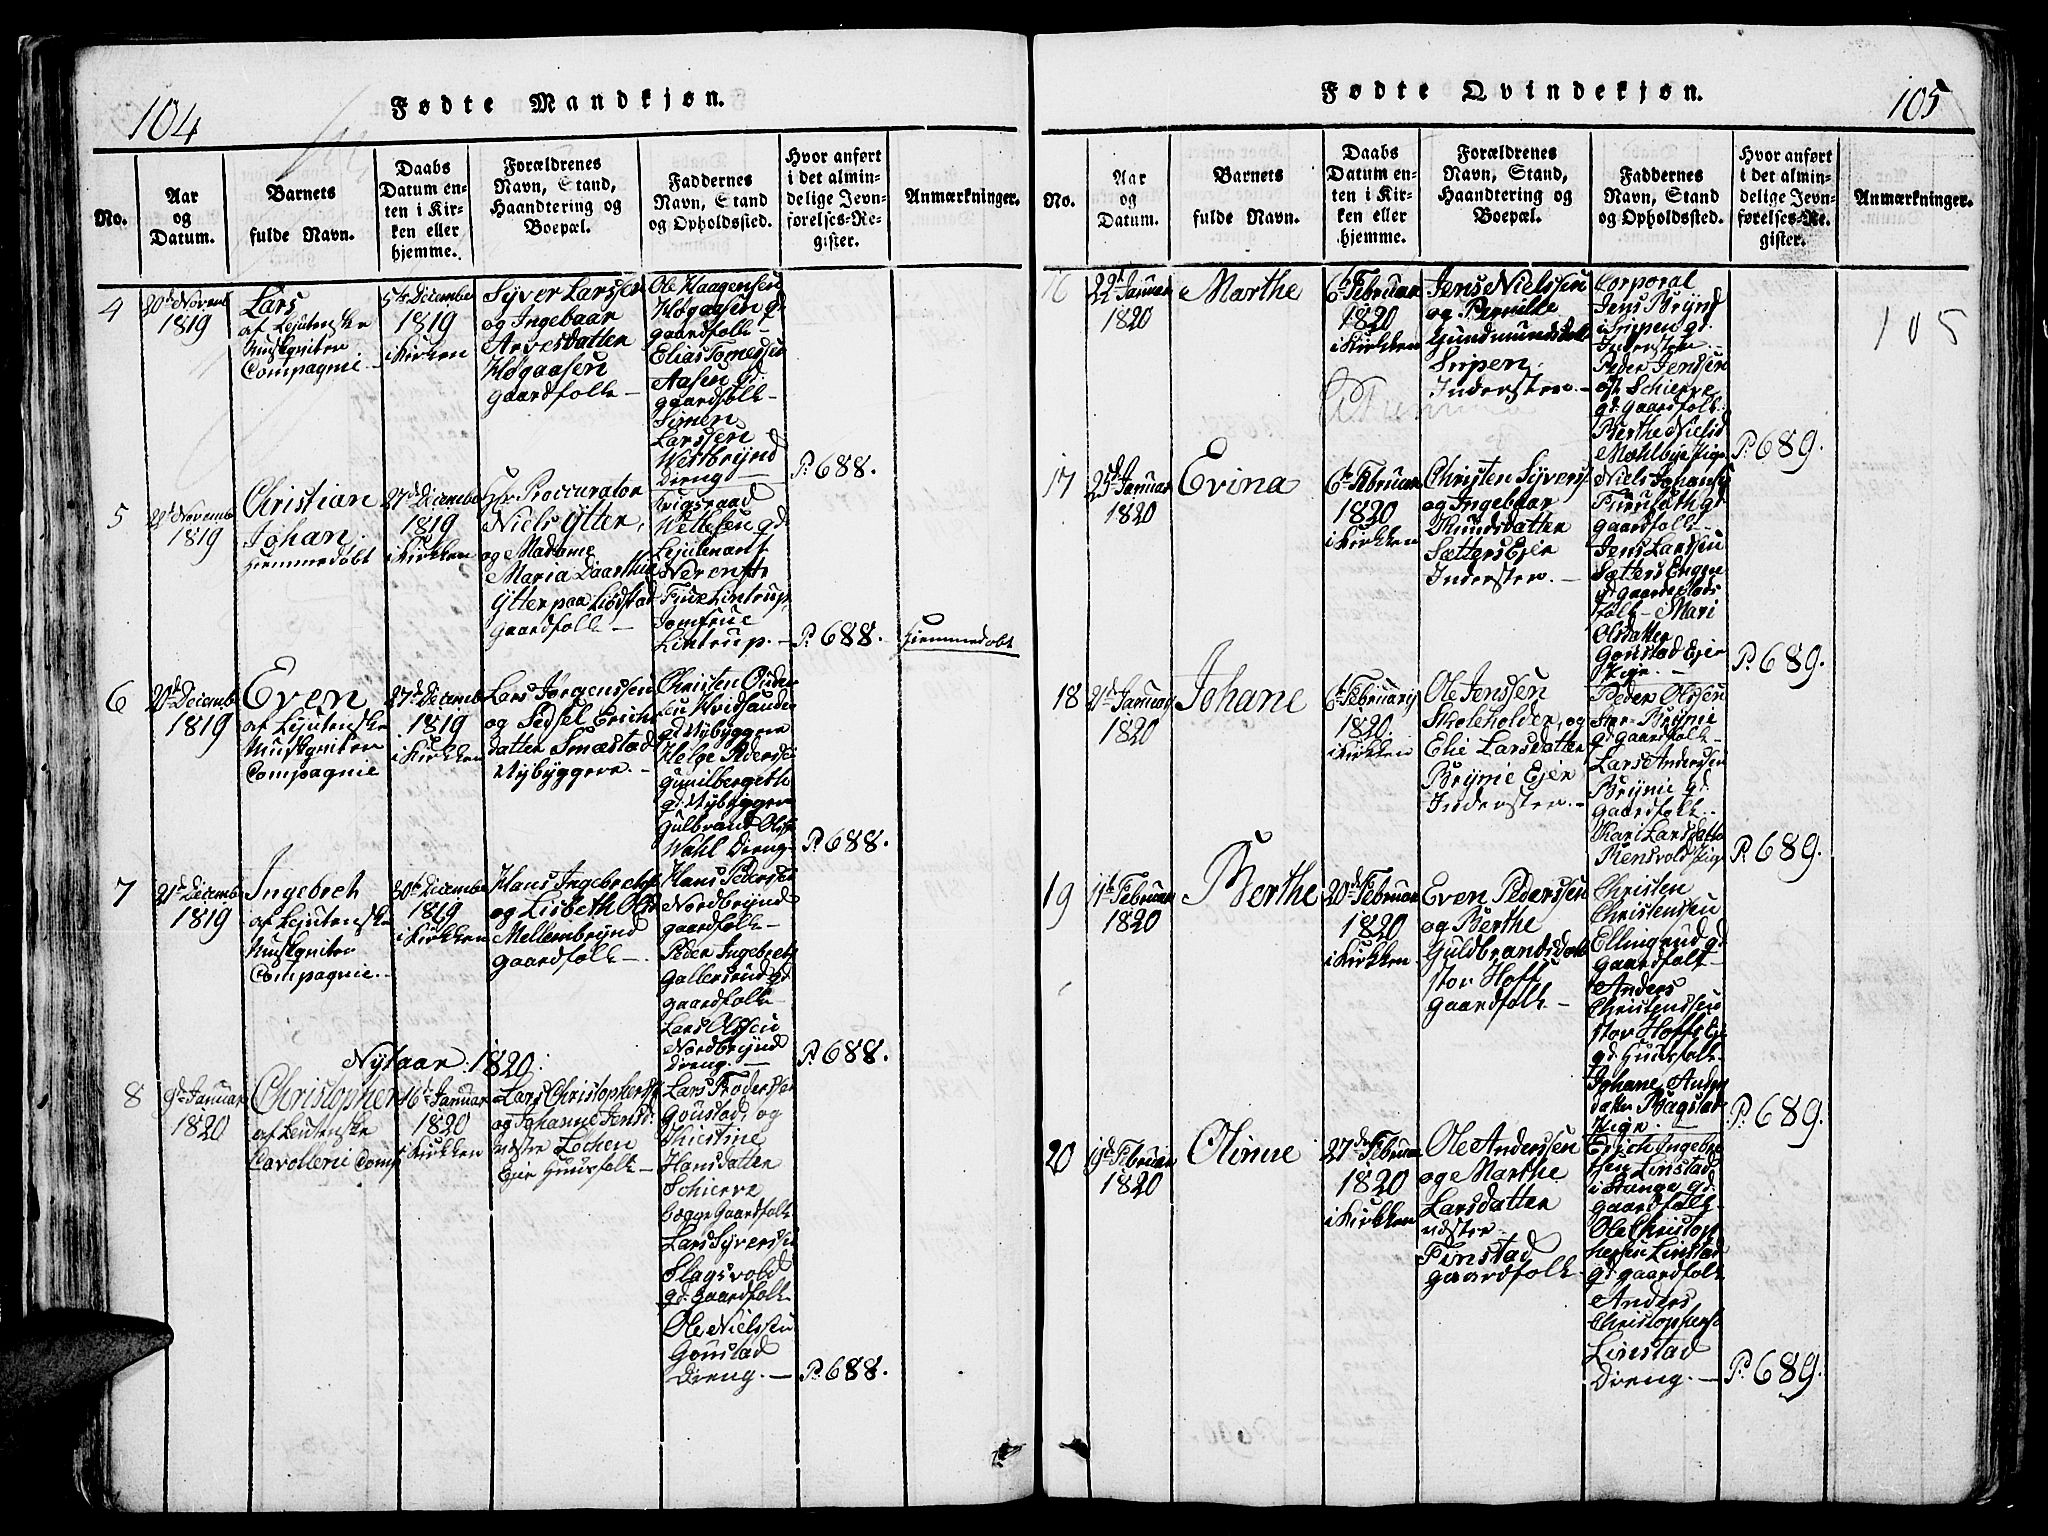 104
Fødte Mandkjøn.
No.
Aar
og
Datum.
Barnets
fulde Navn.
Daabs
Datum en-
ten i Kir-
ken eller
hjemme.
Forældrenes
Navn, Stand,
Haandtering og
Boepæl.
Faddernes
Navn, Stand
og Opholdssted.
Hvor anført
i det almin-
delige Jevn-
førelses-Re-
gister.
Anmærkninger.
4
20de Novemb
1819
Lars
af Lejutenske
Musqniten
Compagnie.
5te Decembr
1819
i Kirken
Syver Larssen
og Ingebaar
Arvesdatter
Høgaasen
gaardfolk
Ole Haagensen
Høgaasen gd.
gaardfolk
Elias Tomessen
Aasen gd.
gaardfolk
Simen
Larssen
Westbrÿnd
Dreng
P. 688.
5
Novemb
1819
Christian
Johan
hiemmedøbt
27de Decembr
1819
i Kirken
Hr. Proccurator
Niels Ytter,
og Madame
Maria Daarthea
Ytter paa Lødstad
gaardfolk
Krigsraad
Wettesen gd.
Lejutenant
Lintrup,
Jomfrue
Lintrup.
P. 688.
hiemmedøbt
6
Decemb
1819
Even
af Lejutenske
Musqniten
Compagnie
27de Decemb
1819
i Kirken
Lars Jørgenssen
og Sidsel Erichs
datter Smæstad
Nybÿggere.
Christen Peder
sen Hvidsanden
gd Nybÿggere
Helge Pederssen
Gunilbergeth
gd. Nybÿggere
Gulbrand Olss
Wahl Dreng
P. 688.
7
21de Decemb
1819
Ingebreth
af Lejutenske
Musqniten
Compagnie.
30te Decembe
1819
i Kirken
Hans Ingebrets
og Lisbeth Ols
Mellembrÿnd
gaardfolk
Hans Pederssen
Nordbrÿnd
gaardfolk
Peder Ingebrets
Gallersrud gd
gaardfolk
Lars Olssen
Nordbrÿnd
Dreng.
P. 688.
Nytaar. 1820.
8
9de Januar
1820
Christopher
af Leutenske
Cavallerie Comp
16de Januar
1820
i Kirken
Lars Christophers
og Johanne Jensd.
nedstre Lochen
Ejer Huusfolk
Lars Frederssen
Goustad, og
Kiestine
Hansdatter
Schierve
begge Gaardfolk
Lars Syverssen
Slagsvold
gd. Gaardfolk
Ole Nielssen
Goustad
Dreng.
P. 688.
105
Fødte Qvindekjøn.
No.
Aar
og
Datum.
Barnets
fulde Navn.
Daabs
Datum en-
ten i Kir-
ken eller
hjemme.
Forældrenes
Navn, Stand,
Haandtering og
Boepæl.
Faddernes
Navn, Stand
og Opholdssted.
Hvor anført
i det almin-
delige Jevn-
førelses-Re-
gister.
Anmærkninger.
16
22de Januar
1820
Marthe
6te Februar
1820
i Kirken
Jens Nielssen
og Pernille
Gundmundsdatt
Sripen
Inderster.
Corporal
Jens Brÿnd
i Sripen gd.
Inderster.
Peder Jenssen
Schierve
gd. Gaardfolk.
Berthe Nielsd
Mohlbye Pige
P. 689.
105
17
25de Januar
1820
Evina
6te Februar
1820
i Kirken
Christen Syvers
og Ingebaar
Knudsdatter
Sætters Ejer
Inderster.
Niels Johans
Furuseth gd.
gaardfolk
Jens Larssen
Sætters Engen
gd gaardmands
folk Mari
Olsdatter
Goustad Ejer
Pige.
P. 689.
18
21de Januar
1820
Johane
6te Februarÿ
1820.
i Kirken
Ole Jenssen
Skoleholder, og
Elie Larsdatter
Brÿnie Ejer
Inderster.
Peder Olssen
Brÿnie
gd. gaardfolk
Lars Anderssen
Brÿnie gd.
gaardfolk.
Kari Larsdatter
Rensvold Pige
P. 689.
19
11te Februar
1820
Berthe
20de Februar
1820
i Kirken
Even Pederssen
og Berthe
Guldbrandsdatt
stor Hoff
gaardfolk
Christen
Christenssen
Ellingrud gd
gaardfolk
Anders
Christenssen
stor Hoffs Ejer
gd. Huusfolk.
Johane Anders
datter Bagstad
Pige.
P. 689.
20
19de Februar
1820
Olinne
27de Februar
1820
i Kirken
Ole Anderssen
og Marthe
Larsdatter
nedstre
Finstad
gaardfolk
Erich Ingebre
thsen Linstad
i Stange gd.
gaardfolk
Ole Christop
hersen Linstad
gd. gaardfolk
Anders
Christophers
Linstad
Dreng.
P. 689.